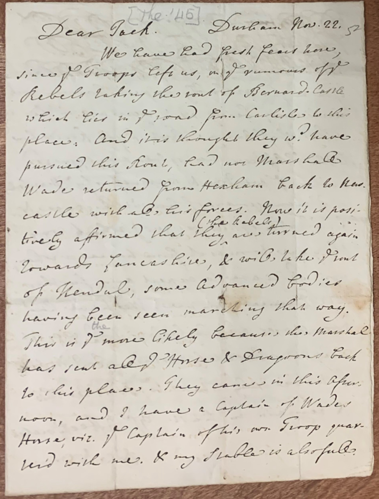 [The '45]
Dear Jack. Durham Nov. 22.
We have had fresh fears here,
since ye Troops left us, in ye rumours of ye
Rebels taking the rout of Bernard-Castle
which lies in ye road from Carlisle to this
place. And it is thought they wd. have
pursued this Rout, had not Marshall
Wade returned from Hexham back to New-
castle with all his forces. Now it is posi-
(the Rebels)
tively affirmed that they are turned again
towards Lancashire, & will take ye rout
of Kendal, some Advanced bodies
having been seen marching that way.
the
This is ye more likely because the Marshal
has sent all ye Horse & Dragoons back
to this place. They came in this After-
noon, and I have a Captain of Wades
Horse, viz. ye Captain of his own Troop quar-
terd with me. & my Stable is also full